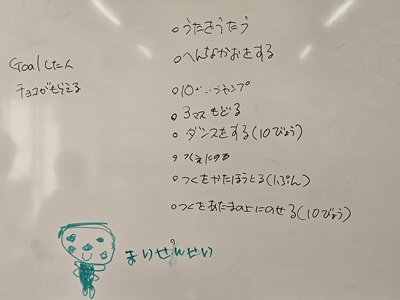 Goalしたら
チョコがもらえる
○うたをうたう
○へんなかおをする
○10かいジャンプ
○3マスもどる
○ダンスをする(10びょう)
○つくえにのる
○つくをかたほうとる(1ぷん)
○つくをあたまの上にのせる(10びょう)
まいせんせい